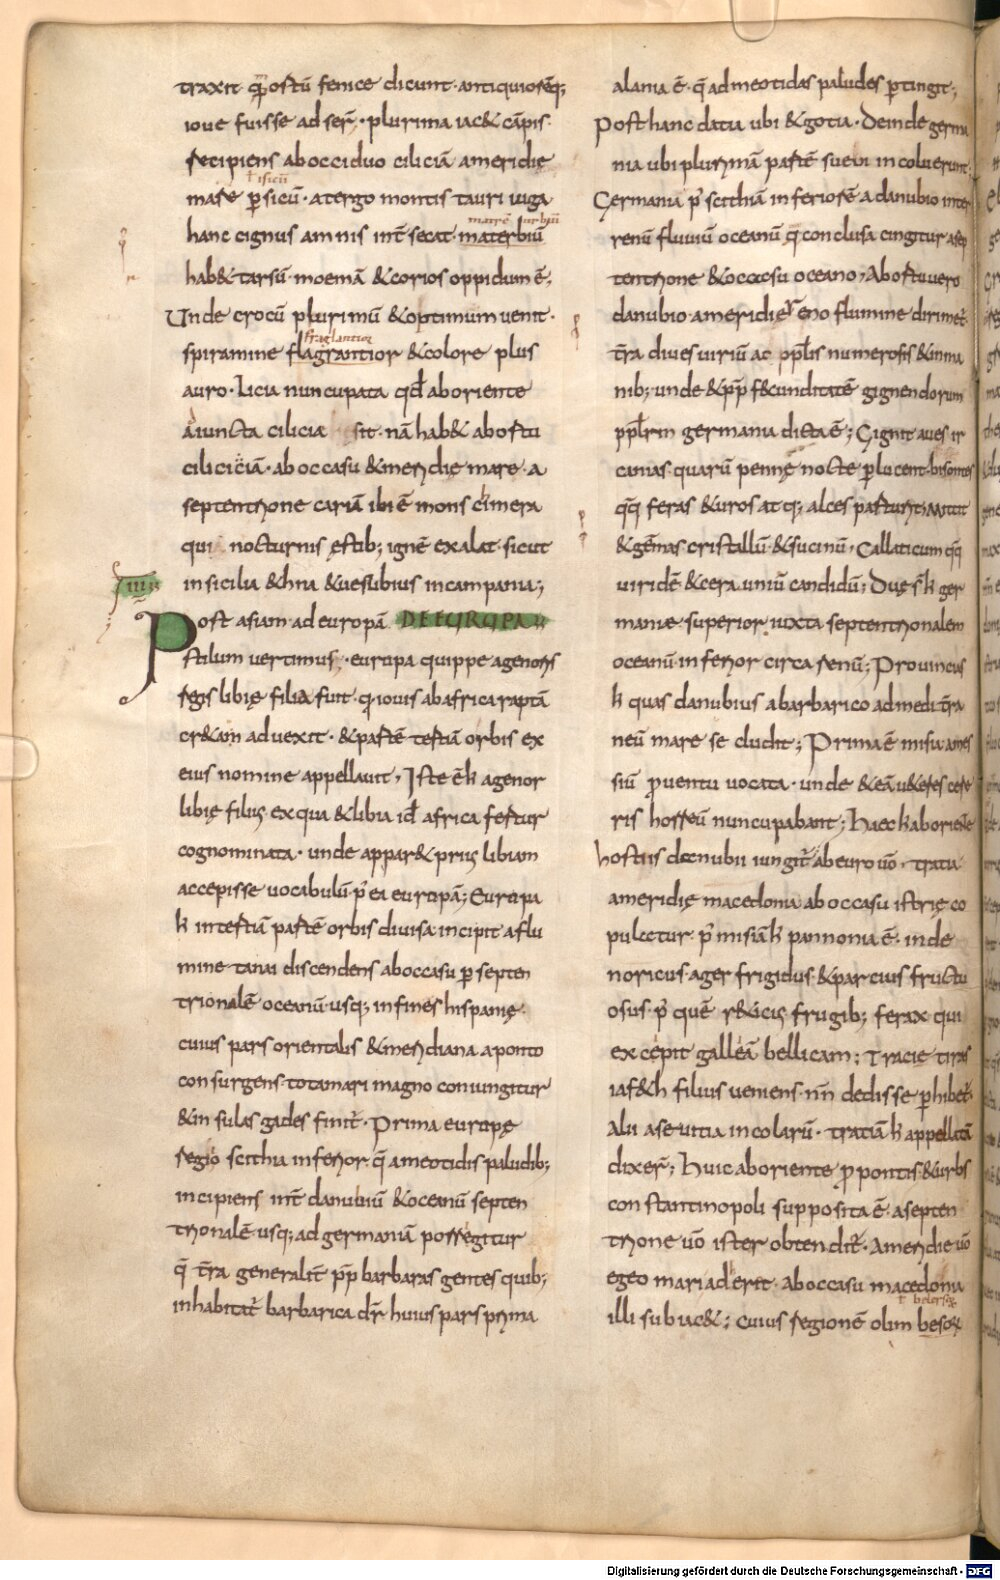 traxit quẽ ortũ fenice dicunt · antiquiorẽq;
ioue fuisse adser̃ · plurima iac& cãpis ·
recipiens ab occiduo ciliciã a meridie
ł isicũ
mare p̱sicũ · a tergo montis tauri iuga
matrẽ urbiũ
hanc cignus amnis int̃ secat materbiũ
hab& tarsũ · moemã & corios oppidum ẽ;
Unde crocũ plurimũ & optimum uenit ·
fraglantior
spiramine flagrantior & colore plus
auro · Licia nuncupata qđ ab oriente
aiuncta cilicia sit · nã hab& ab ortu
ciliciciã · ab occasu & meridie mare · a
septentrione cariã ibi ẽ mons cimera
qui nocturnis ęstib; ignẽ exalat · sicut
in sicilia &hna & uesubius in campania;
IIII
Post asiam ad europã DE EUROPA
stilum uertimus; · europa quippe agenoris
regis libię filia fuit · q̃ iouis ab africa raptã
cr&am aduexit · & partẽ tertiã orbis ex
eius nomine appellauit, Iste ẽ ꝁ agenor
libię filius ex qua & libia id ẽ africa fertur
cognominata · unde appar& prius libiam
accepisse uocabulũ p̃ ea europã; Europa
ꝁ in tertiã partẽ orbis diuisa incipit a flu
mine tanai discendens ab occasu p̱ septen
trionalẽ oceanũ usq; in fines hispanię ·
cuius pars orientalis & meridiana a ponto
consurgens tota mari magno coniungitur
& in sulas gades finit̃ · Prima europę
regio scithia inferior q̃ a meotidis paludib;
incipiens int̃ danubiũ & oceanũ septen
trionalẽ usq; ad germaniã porregitur
q̃ t̃ra generalit̃ p̱p̱ barbaras gentes quib;
inhabitat̃ barbarica dr̃ huius pars prima
alania ẽ · q̃ ad meotidas paludes p̱tingit;
Post hanc datia ubi & gotia · Deinde germa
nia ubi plurimã partẽ sueui incoluerunt ·
Germania p̃ scithiã inferiorẽ a danubio inter
renũ fluuiũ oceanũ q̃ conclusa cingitur a sep
tentrione & occasu oceano, Ab ortu uero
danubio · a meridie reno flumine dirimet̃
t̃ra diues uiriũ ac pplis numerosis & inma
nib; unde & p̱p̱ fecunditatẽ gignendorum
pplrm germania dicta ẽ; Gignit aues ir
canias · quarũ pennę nocte p̱lucent · bisontes
q̃q̃ feras & uros atq; alces parturit, Mittit
& gẽmas cristallũ & sucinũ, Callaicum q̃q̃
uiridẽ & cera uniũ candidũ; Duę s̃ ꝁ ger
manię superior iuxta septentrionalem
oceanũ inferior circa renũ; Prouincias
ꝁ quas danubius a barbarico ad medit̃ra
neũ mare se cludit; Prima ẽ misia a mes
siũ prouentu uocata · unde & eã u&eres cere
ris horreũ nuncupabant; Haec ꝁ ab oriente
hostiis danubii iungit̃ ab euro u͂o · tratia
a meridię macedonia ab occasu istrię co
pulcetur · p̃ misiã ꝁ pannonia ẽ · inde
noricus ager frigidus & parcius fructu
osus · p̃ quẽ r&icis frugib; ferax qui
excepit galleã bellicam; Tracie tiras
iaf&h filius ueniens · nñ dedisse p̱hibet̃
alii a seuitia incolarũ · tratiã ꝁ appellatã
dixer̃; Huic ab oriente ꝓpontis & urbs
constantinopoli supposita ẽ · a septen
trione u͂o ister obtendit̃ · A meridie u͂o
egeo mari aderit · ab occasu macedonia
illi subiac&; cuius regionẽ olim besorũ